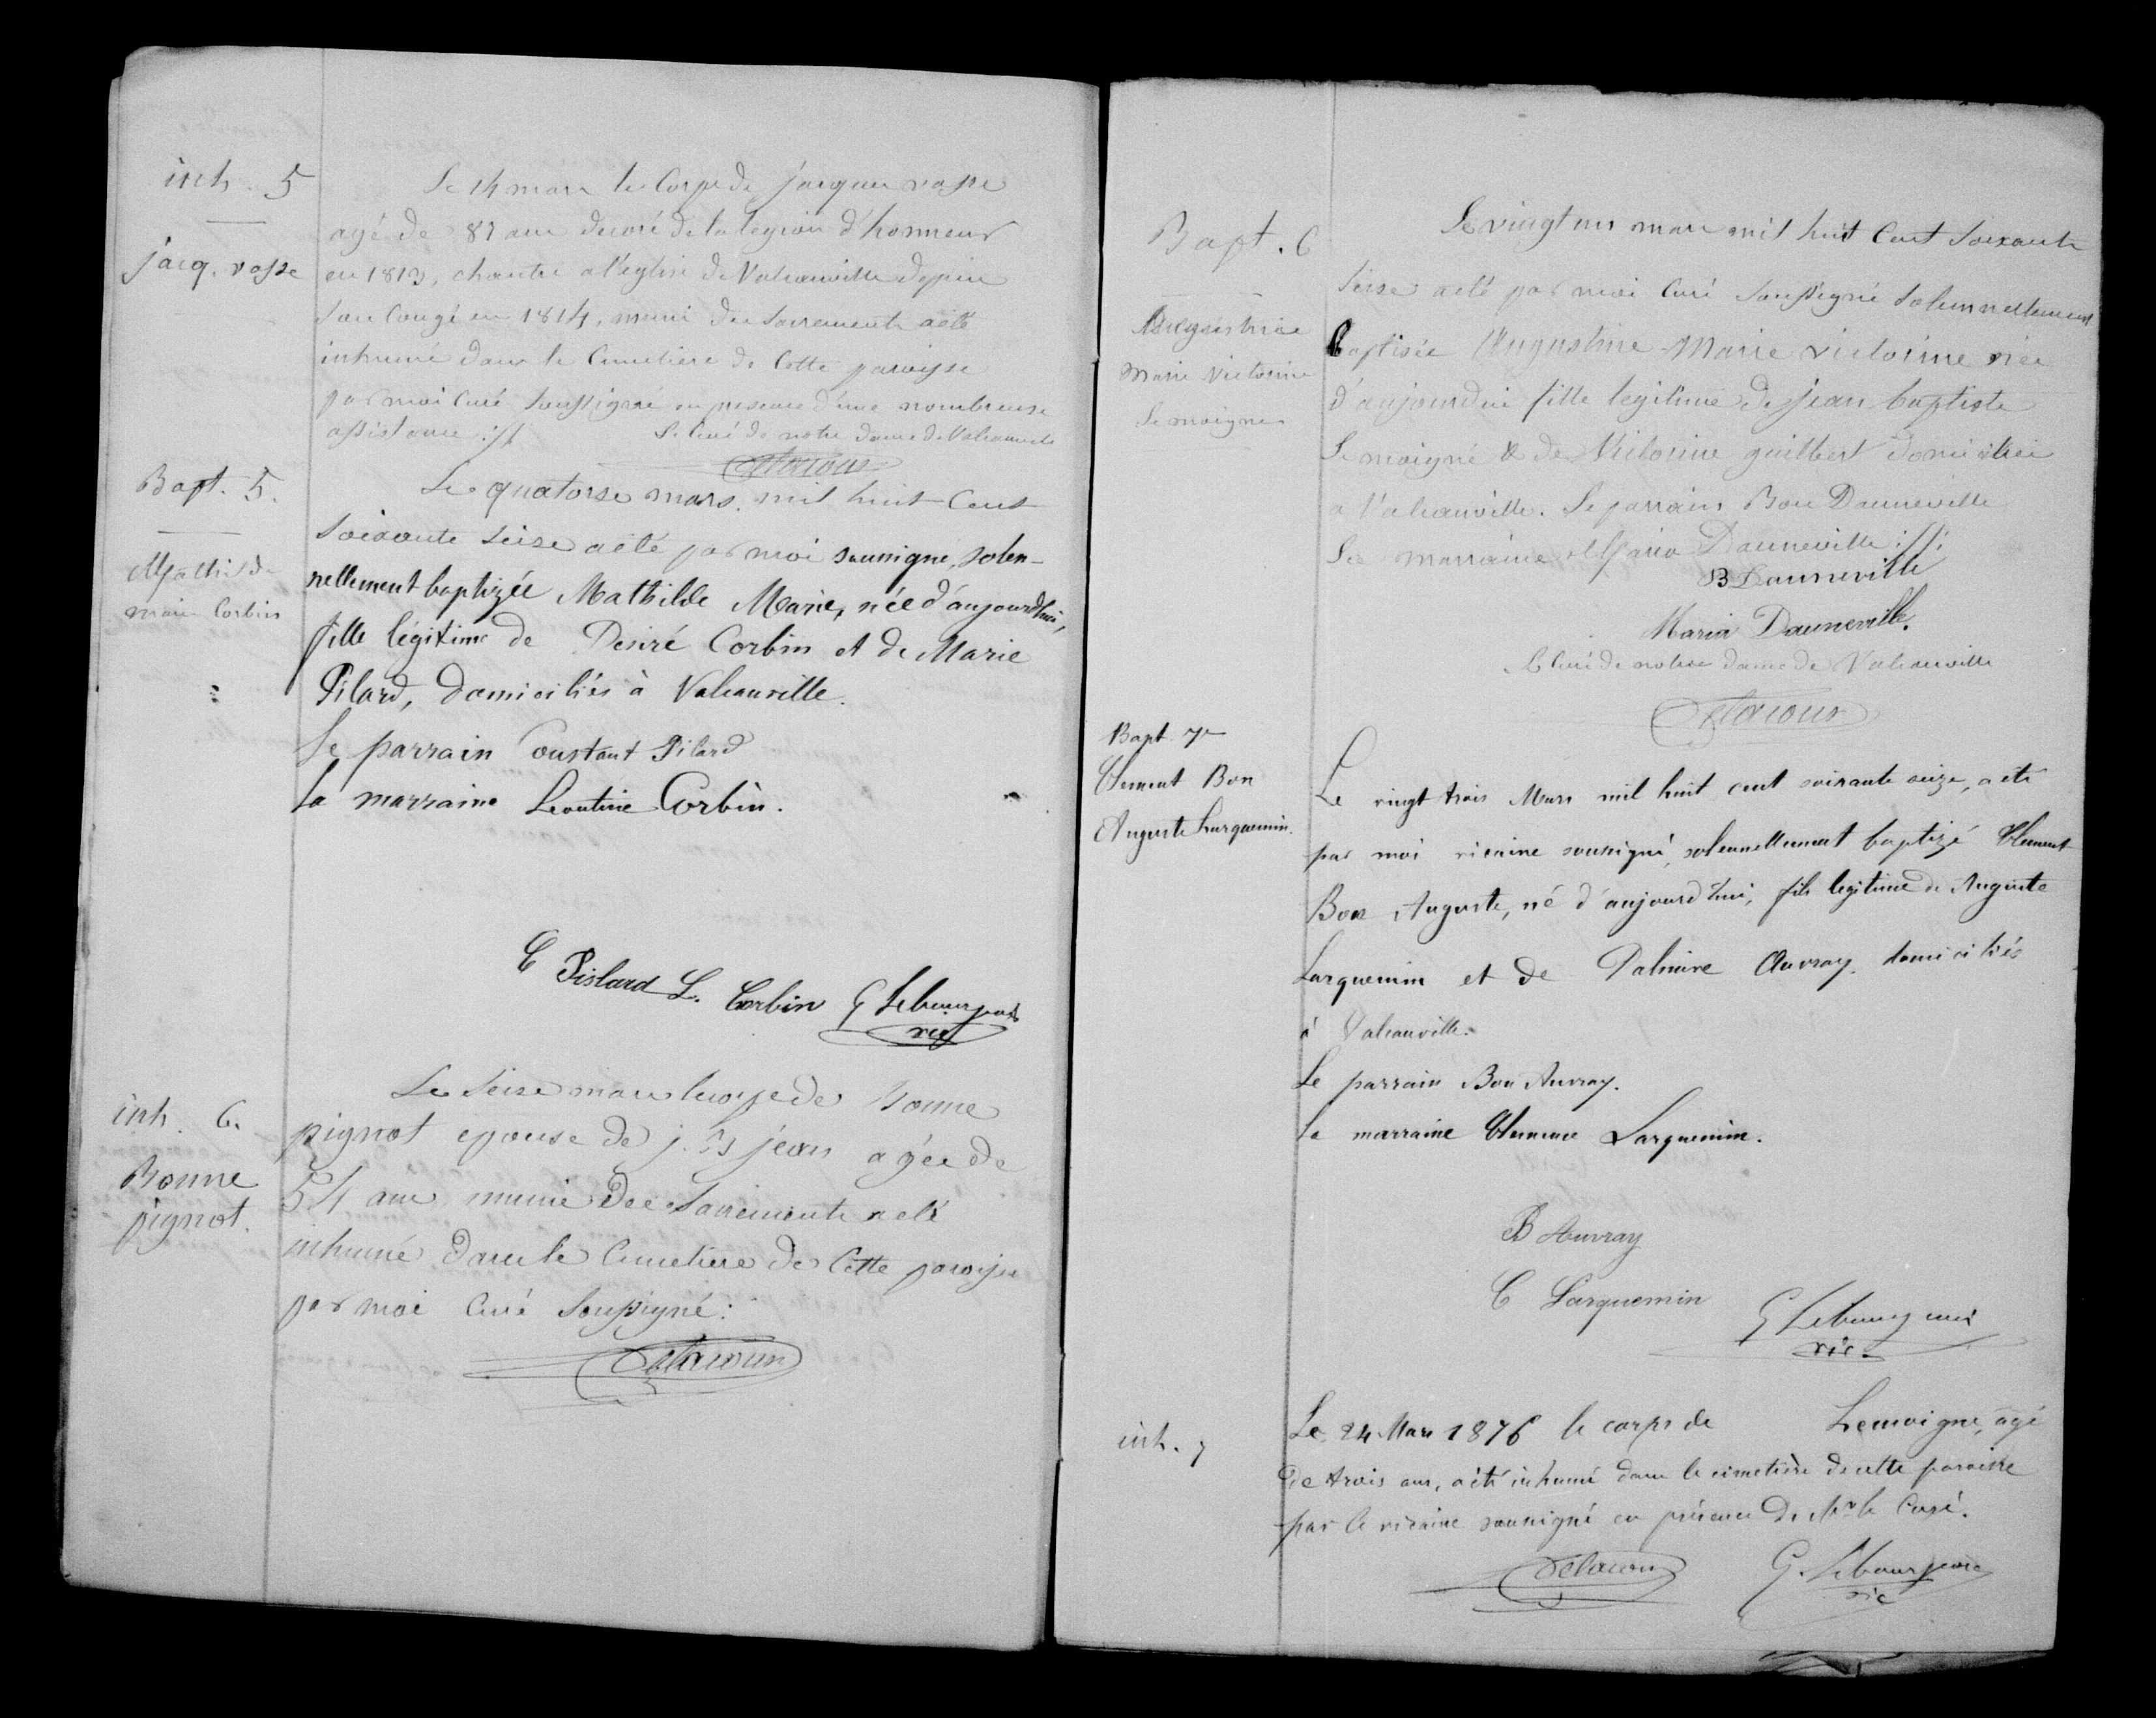 inh. 5
jacq. vasse
Le 14 mars le Corps de jacques vasse
agé de 87 ans decoré de la legion d'honneur
en 1813, chantre a l'eglise de Valcanville depuis
son Congé en 1814, muni des sacrements a été
inhumé dans le Cimetiere de Cette paroisse
par moi Curé Soussigné en presence d'une nombreuse
assistance ://
Le Curé de notre dame de Valcanville
Delacour
Bapt. 5.
Mathilde
marie Corbin
Le quatorse mars mil huit Cent
Soixante Seise a été par moi soussigné, solen-
nellement baptizée Mathilde Marie, née d'aujourd'hui,
fille légitime de Desiré Corbin et de Marie
Pilard, domiciliés à Valcanville.
Le parrain Constant Pilard
La marraine Leontine Corbin.
C Pislard L. Corbin G Lebourgeois
vic
inh. 6.
Bonne
pignot.
Le Seise mars le corps de Bonne
pignot epouse de j. Bte jean agée de
54 ans munie des Sacrements a été
inhumé dans le Cimetiere de Cette paroisse
par moi Curé Soussigné :
Delacour
Bapt. 6
Augustine
Marie Victorine
Le moigne
Le vingt un mars mil huit Cent Soixante
Seise a été par moi Curé Soussigné Solennellement
baptisée Augustine Marie victorine née
d'aujourdui fille legitime de jean baptiste
Le moigné & de Victorine guilbert domiciliés
a Valcanville. Le parrain Bon Danneville
La marraine Maria Danneville ://:
B Danneville
Maria Danneville.
Le Curé de notre dame de Valcanville
Delacour
Bapt. 7
Clement Bon
Auguste Larquemin.
Le vingt trois Mars mil huit cent soixante seize, a été
par moi vicaire soussigné, solennellement baptizé Clement
Bon Auguste, né d'aujourd'hui, fils legitime de Auguste
Larquemin et de Palmire Auvray domiciliés
à Valcanville.
Le parrain Bon Auvray.
La marraine Clemence Larquemin.
B Auvray
C Larquemin
G Lebourgeois
vic.
inh. 7
Le 24 Mars 1876 le corps de Lemoigne, agé
de trois ans, a été inhumé dans le cimetière de cette paroisse
par le vicaire soussigné en présence de Mr le Curé.
Delacour G. Lebourgeois
vic